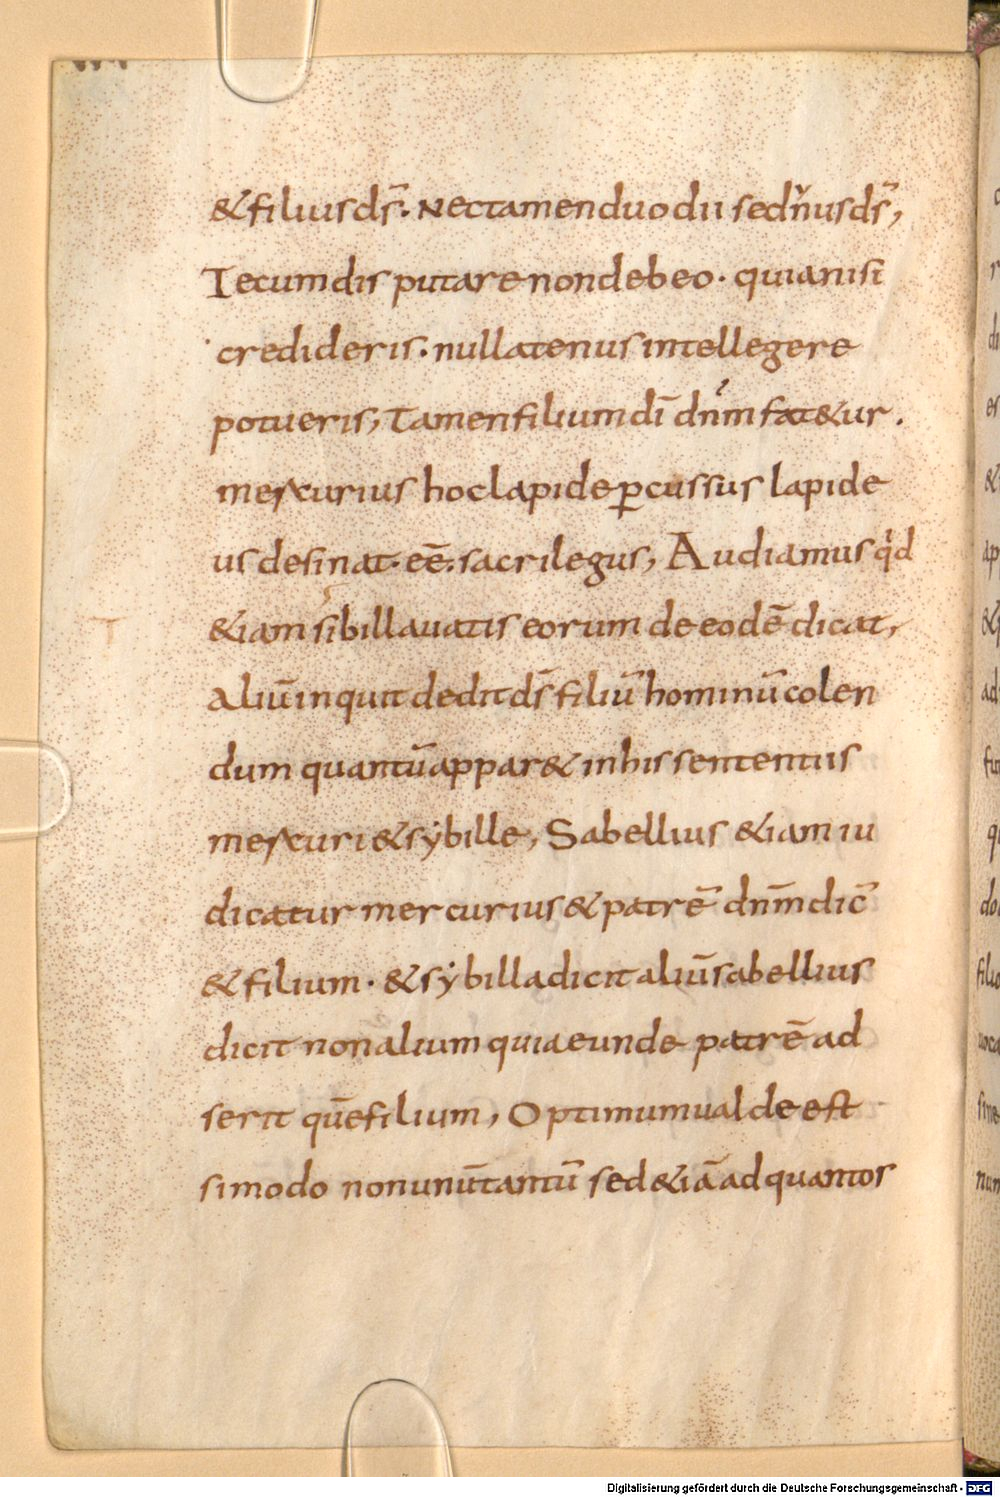 & filius ds̄. Nec tamen duo dii sed vnus ds̄,
Tecum dis putare non debeo. quia nisi
credideris. nullatenus intellegere
potueris, Tamen filium dī dn̄m fat&ur.
mercurius hoc lapide ꝑcussus lapide
us desinat. eē. sacrilegus, Audiamus qid
&iam sibilla uatis eorum de eodē dicat,
Aliū inquit dedit ds̄ filiū hominū colen
dum quantū appar& in his sententiis
mercuri & sẏbille, Sabellius &iam iu
dicatur mercurius & patrē dn̄m dic̄
& filium. & sẏbilla dicit aliū sabellius
dicit non alium quia eunde patrē ad
serit quē filium, Optimum ualde est
si modo non unū tantū sed &iā ad quantos
T
Digitalisierung gefördert durch die Deutsche Forschungsgemeinschaft - DFG